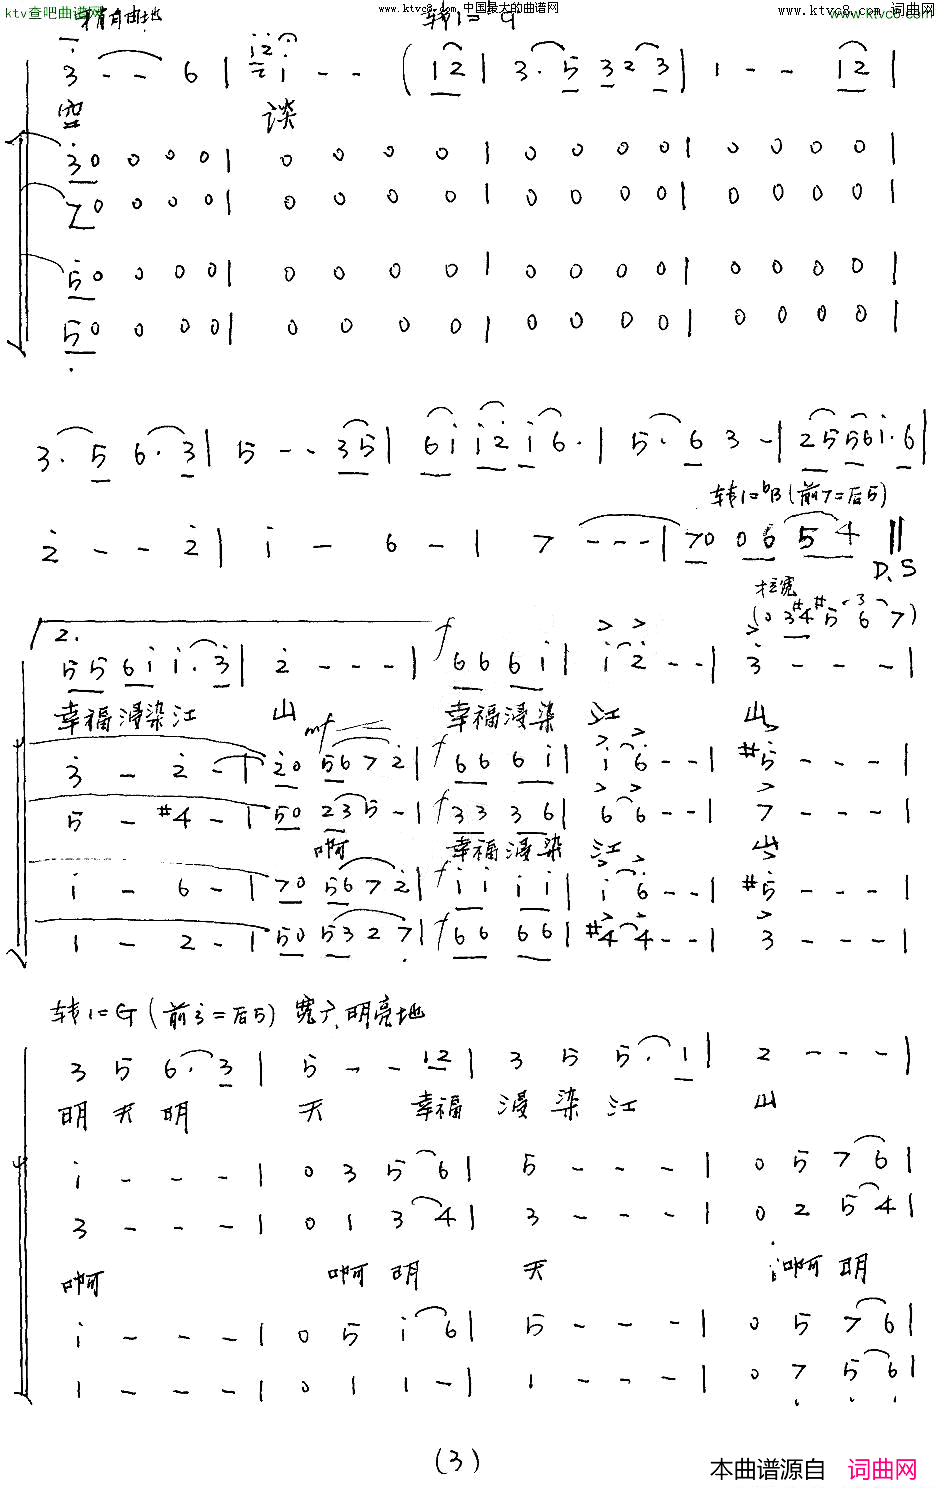 ktv查吧曲谱网 www.ktvc8.com 中国最大的曲谱网 www.ktvc8.com 词曲网
www.ktvc8.com
稍自由地 转1=G
3 - - 6 | i - - ( 1 2 | 3 . 5 3 2 3 | 1 - - 1 2 |
空 谈
3 0 0 0 0 | 0 0 0 0 | 0 0 0 0 | 0 0 0 0 |
7 0 0 0 0 | 0 0 0 0 | 0 0 0 0 | 0 0 0 0 |
5 0 0 0 0 | 0 0 0 0 | 0 0 0 0 | 0 0 0 0 |
5 0 0 0 0 | 0 0 0 0 | 0 0 0 0 | 0 0 0 0 |
3 . 5 6 . 3 | 5 - - 3 5 | 6 i i 2 i 6 . | 5 . 6 3 - | 2 5 5 6 i . 6 |
转1=bB (前7=后5)
2 - - 2 | i - 6 - | 7 - - - | 7 0 0 6 5 4 ||
D.S
拉宽
(0 3 #4 #5 6 7)
2.
5 5 6 i i . 3 | 2 - - - | f 6 6 6 i | i 2 - - | 3 - - - |
幸福浸染江 山 mf 幸福浸染 江 山
3 - 2 - | 2 0 5 6 7 2 | f 6 6 6 i | i 6 - - | #5 - - - |
5 - #4 - | 5 0 2 3 5 - | f 3 3 3 6 | 6 6 - - | 7 - - - |
啊 幸福浸染 江 山
i - 6 - | 7 0 5 6 7 2 | f i i i i | i 6 - - | #5 - - - |
1 - 2 - | 5 0 5 3 2 7 | f 6 6 6 6 | #4 4 - - | 3 - - - |
转1=G (前3=后5) 宽广、明亮地
3 5 6 . 3 | 5 - - 1 2 | 3 5 5 . 1 | 2 - - - |
明 天 明 天 幸福 浸 染 江 山
i - - - | 0 3 5 6 | 5 - - - | 0 5 7 6 |
3 - - - | 0 1 3 4 | 3 - - - | 0 2 5 4 |
啊 啊 明 天 啊 明
i - - - | 0 5 i 6 | 5 - - - | 0 5 7 6 |
1 - - - | 0 1 1 - | 1 - - - | 0 7 5 6 |
(3)
本曲谱源自 词曲网